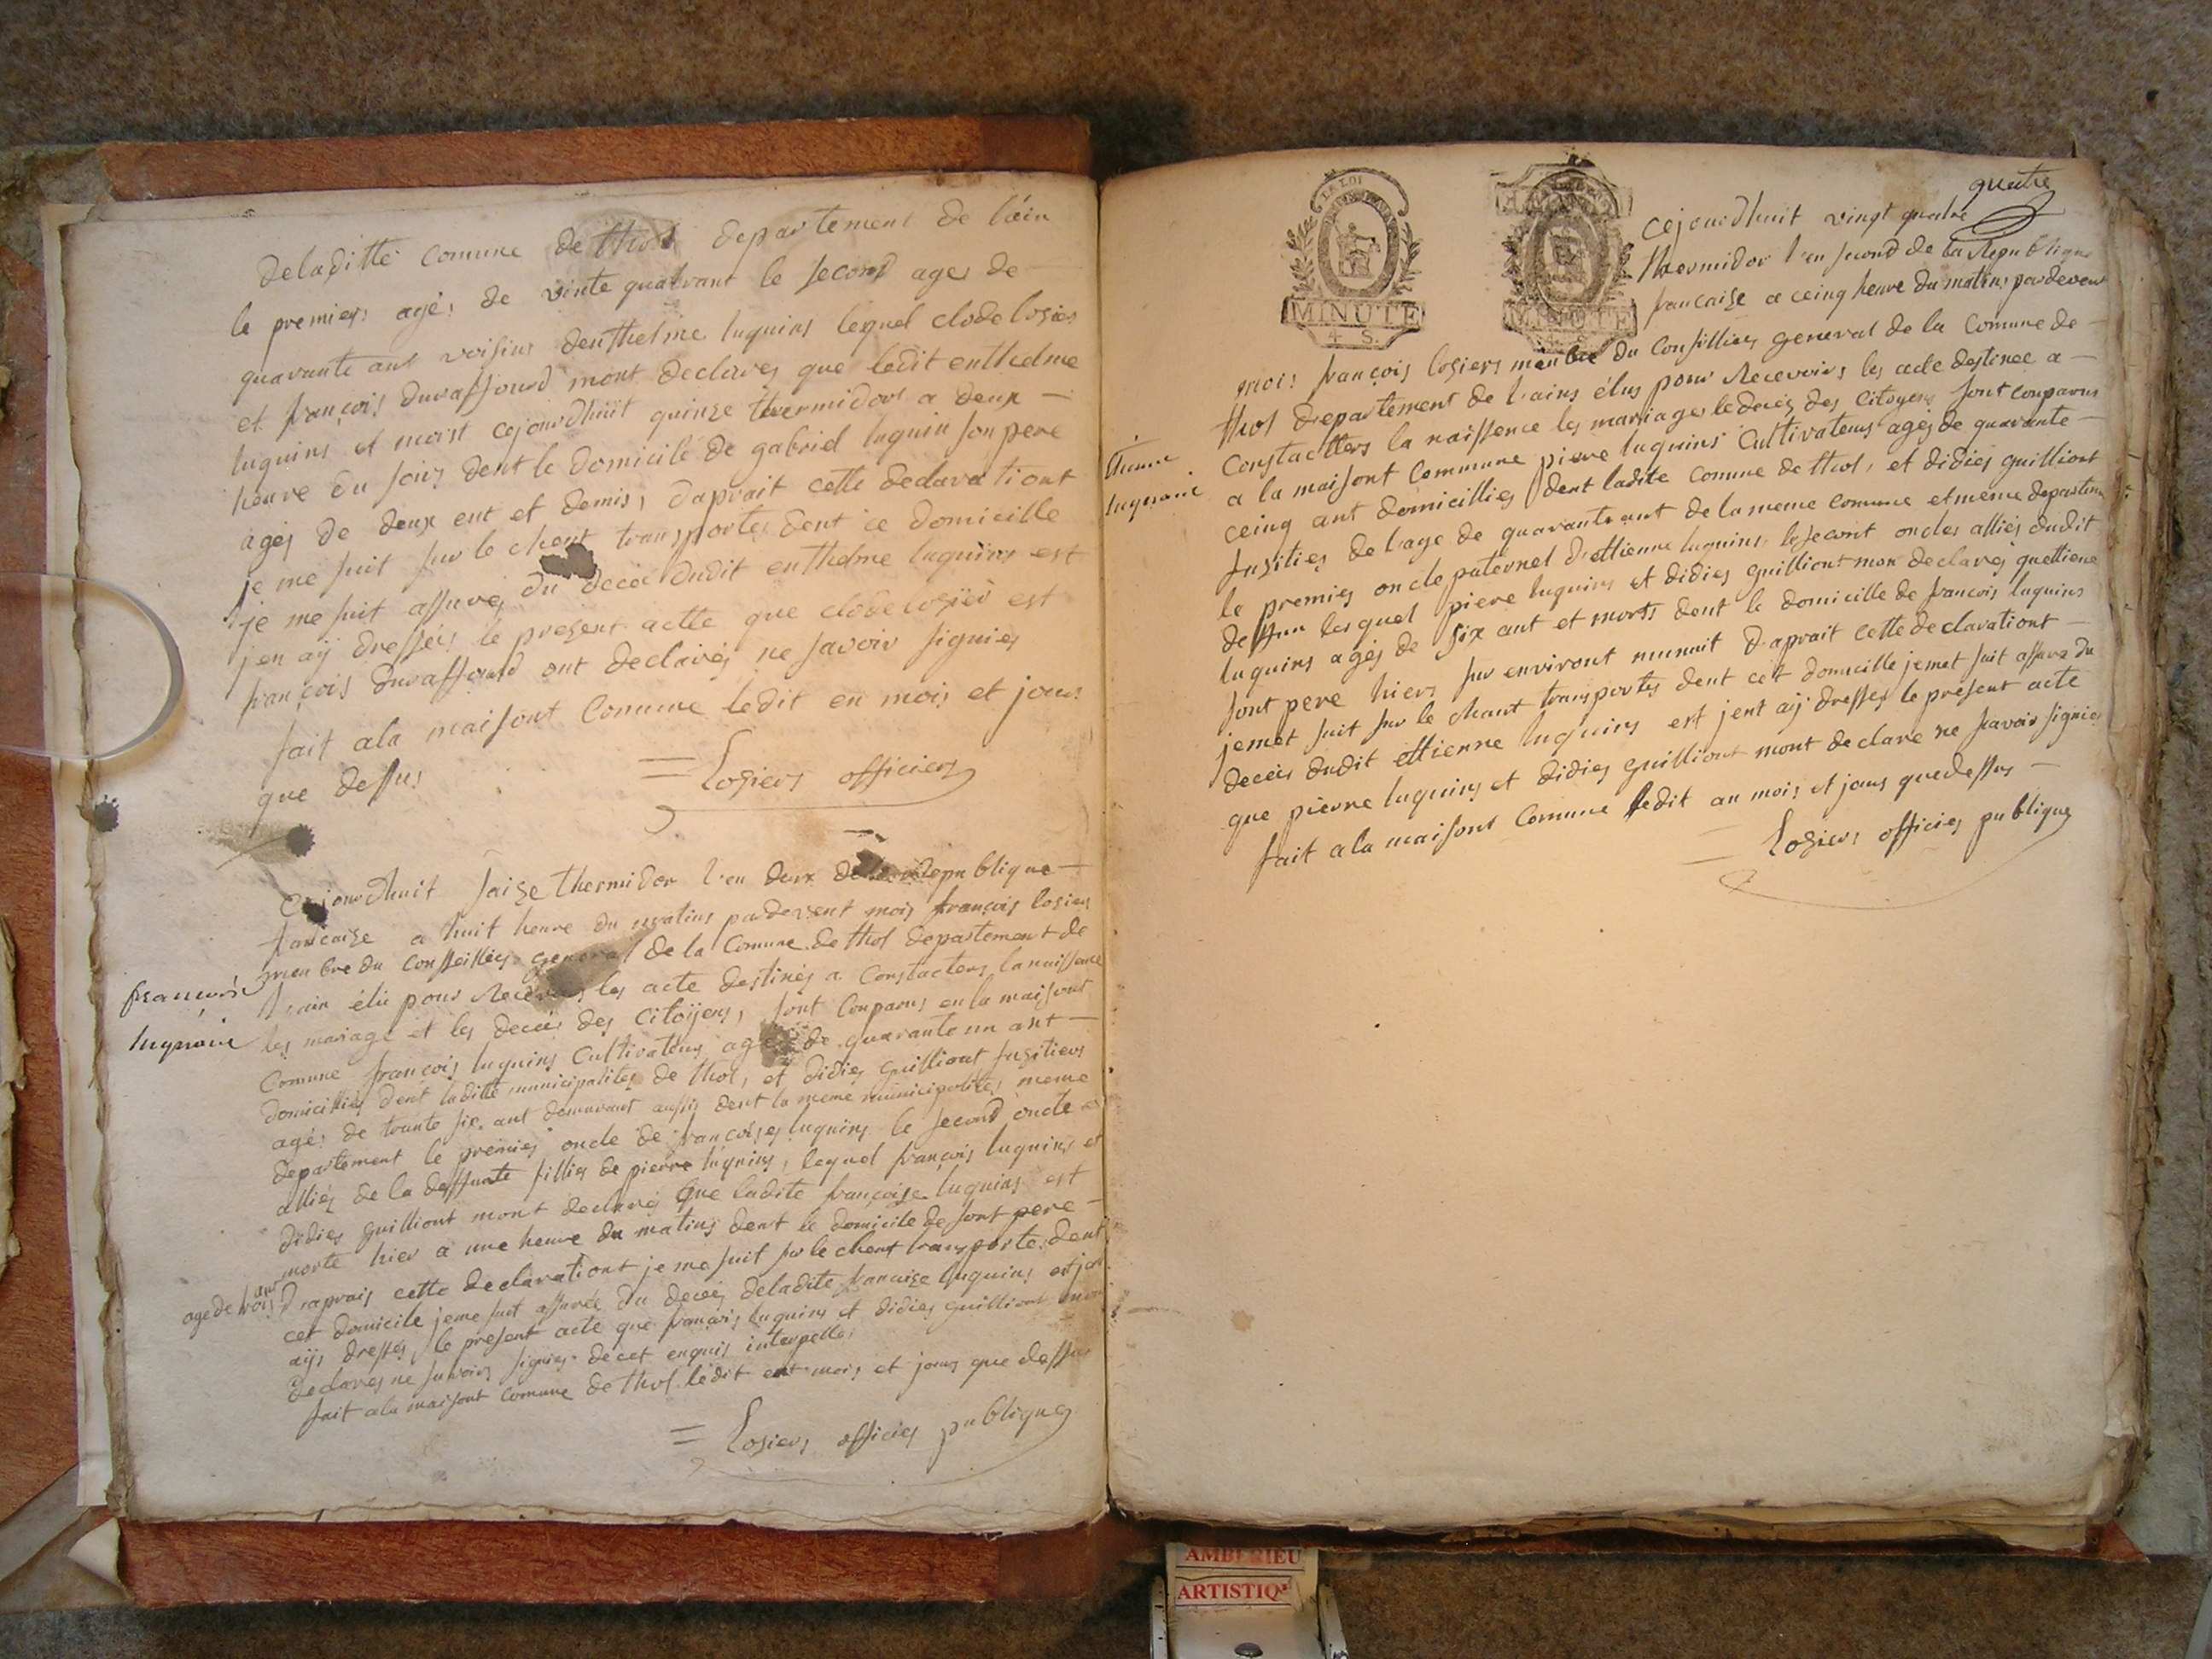 deladitte comune de thol departement de l'ein
le premiers ages de vinte quatrant le second ages de
quarante ant voisins denthelme luquins lequel clode losier
et françois durafourd mont declares que ledit enthelme
luquins et mort cejourdhuit quinze thermidor a deux
heure du soirs dent le domicile de gabriel luquin son pere
ages de deux ent et demis, daprait cette declarationt
je me suit sur le chent transportes dent ce domicille
je me suit assures du deces dudit enthelme luquins est
jen aÿ dresses le present actte que clode losier est
françois durafourd ont declares ne savoir signies
fait ala maisont Comune ledit en mois et jours
que dessus
= Losiers officiers
cejourdhuit saize thermidor l'en deux de la Republique
francaize a huit heure du matins pardevent mois françois losiers
menbre du conseilles general de la Comune de thol departement de
l'ain élu pour Recevoirs les acte destines a Constacters la naissence
françoise
luquaine
les mariage et les deces des Citoÿens, sont Conparus en la maisont
Comune françois luquins Cultivateurs ages de quarante un ant
domicillies dent laditte municipalites de thol, et didies guilliont fusiliers
ages de trante six ant demurant aussis dent la meme municipalites meme
departement le premies oncle de françoises luquins le second oncle
allies de la deffunte fillies de pierre luquins, lequel françois luquins et
didies guilliont mont declares que ladite françoise luquins est
morte hier a une heure du matins dent le domicile de sont pere
age de trois ant
d'aprais cette declarationt je me suit sur le chent transporte dent
cet domicile jeme suit assurée du deces deladite francaise luquins est jen
aÿs dresses le present acte que françois luquins et didies guilliont mont
declares ne savoirs signies de cet enquis interpelles
fait ala maisont comune de thol ledit ent mois et jours que dessus
= Losiers officies publiques
quatre
LA LOI
MINUTE
4 S.
MINUTE
4 S.
cejourdhuit vingt quatre
thermidor l'en second de la Republique
francaise a ceinq heure du matins pardevent
mois françois losiers menbre du Consillies general de la Comune de
thol departement de l'ains élus pour Recevoirs les acte destinee a
Constactters la naissence les mariages le deces des Citoyens sont conparus
Etienne
luquaine
a la maisont Commune piere luquins Cultivateurs ages de quarante
ceinq ant domicillies dent ladite comune de thol, et didies guilliont
fusilies de l'age de quarante ant de la meme comune et meme departement
le premies oncle paternel d'ettienne luquins le secont oncles allies dudit
deffun lesquel piere luquins et didies guilliont mon declares quettiene
luquins ages de six ant et morts dent le domicille de francois luquins
sont pere hiers sur environt munuit d'aprait cette declarationt
jemet suit sur le chant transportes dent cett domicille jemet suit assura du
deces dudit ettienne luquins est jent aÿ dresses le présent acte
que pierre luquins et didies guilliont mont declare ne savoir signies
fait ala maisont Comune ledit an mois et jours quedessus
= Losiers officies publiques
AMBERIEU
ARTISTIQ